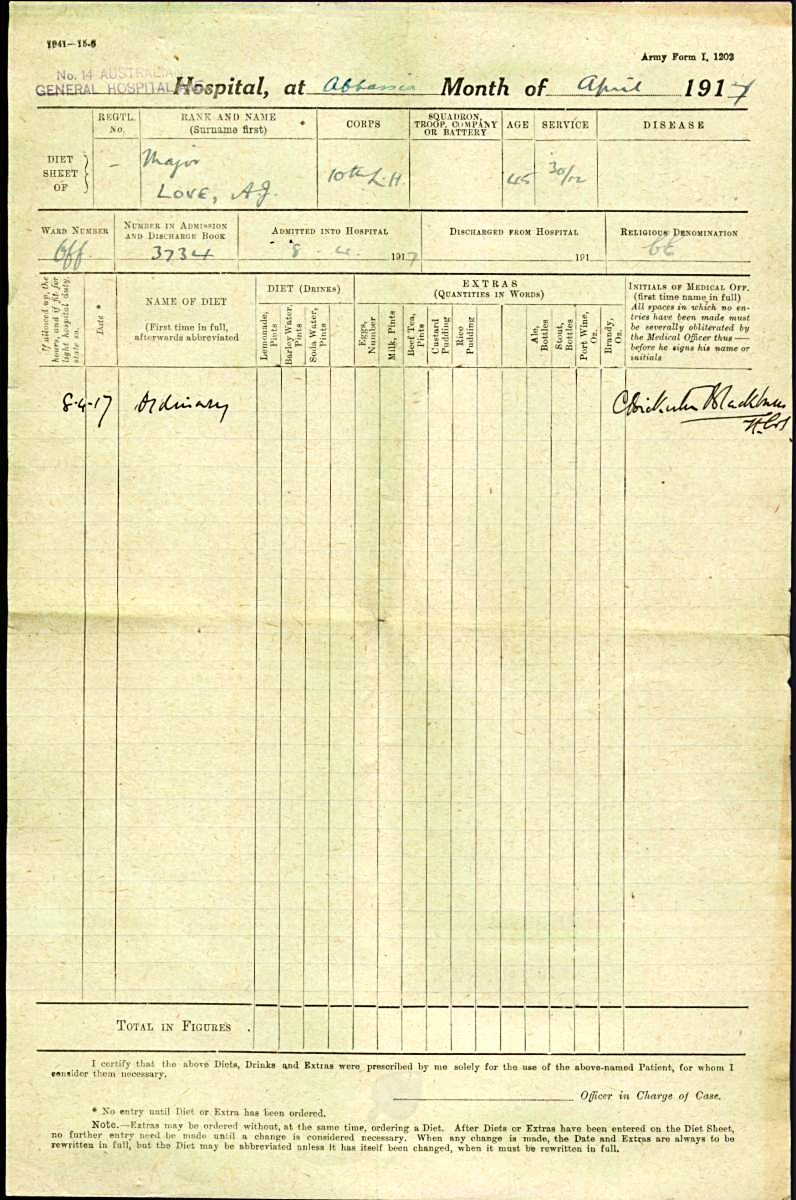 1941—15-6
Army Form I. 1202
No. 14 AUSTRALIAN
GENERAL HOSPITAL
Hospital, at Abbassia Month of April 1917
REGTL. No.
RANK AND NAME (Surname first) *
CORPS
SQUADRON, TROOP, COMPANY OR BATTERY
AGE
SERVICE
DISEASE
DIET SHEET OF
–
Major
LOVE, A.J.
10th L.H.
45
30/12
WARD NUMBER
NUMBER IN ADMISSION AND DISCHARGE BOOK
ADMITTED INTO HOSPITAL
DISCHARGED FROM HOSPITAL
RELIGIOUS DENOMINATION
Off.
3734
8 . 4. 1917
191
CE
If allowed up, the hours, and if fit for light hospital duty, state so.
Date *
NAME OF DIET
(First time in full, afterwards abbreviated
DIET (DRINKS)
Lemonade, Pints
Barley Water, Pints
Soda Water, Pints
EXTRAS
(QUANTITIES IN WORDS)
Eggs, Number
Milk, Pints
Beef Tea, Pints
Custard Pudding
Rice Pudding
Ale, Bottles
Stout, Bottles
Port Wine, Oz.
Brandy, Oz.
INITIALS OF MEDICAL OFF.
(first time name in full)
All spaces in which no en-
tries have been made must
be severally obliterated by
the Medical Officer thus ——
before he signs his name or
initials
8-4-17 Ordinary
Blackburn
TOTAL IN FIGURES .
I certify that the above Diets, Drinks and Extras were prescribed by me solely for the use of the above-named Patient, for whom I
consider them necessary.
Officer in Charge of Case.
* No entry until Diet or Extra has been ordered.
NOTE.—Extras may be ordered without, at the same time, ordering a Diet. After Diets or Extras have been entered on the Diet Sheet,
no further entry need be made until a change is considered necessary. When any change is made, the Date and Extras are always to be
rewritten in full, but the Diet may be abbreviated unless it has itself been changed, when it must be rewritten in full.